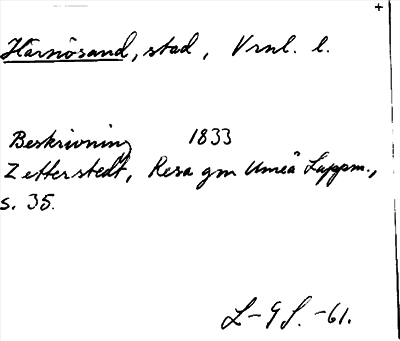 Härnösand, stad, Vrnl. l.
Beskrivning 1833
Zetterstedt, Resa gm Umeå Lappm.,
s. 35.
L-g S. -61.